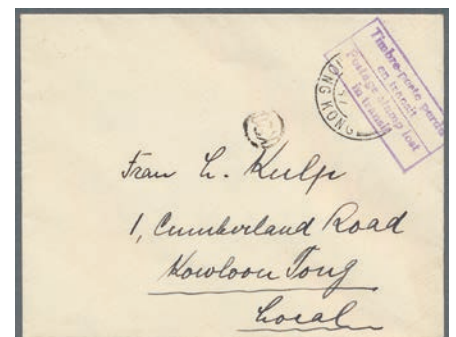 Timbre-poste perdu
en transit
Postage stamp lost
in transit
HONG KONG
Frau L. Kulp
1, Cumberland Road
Kowloon Tong
Local